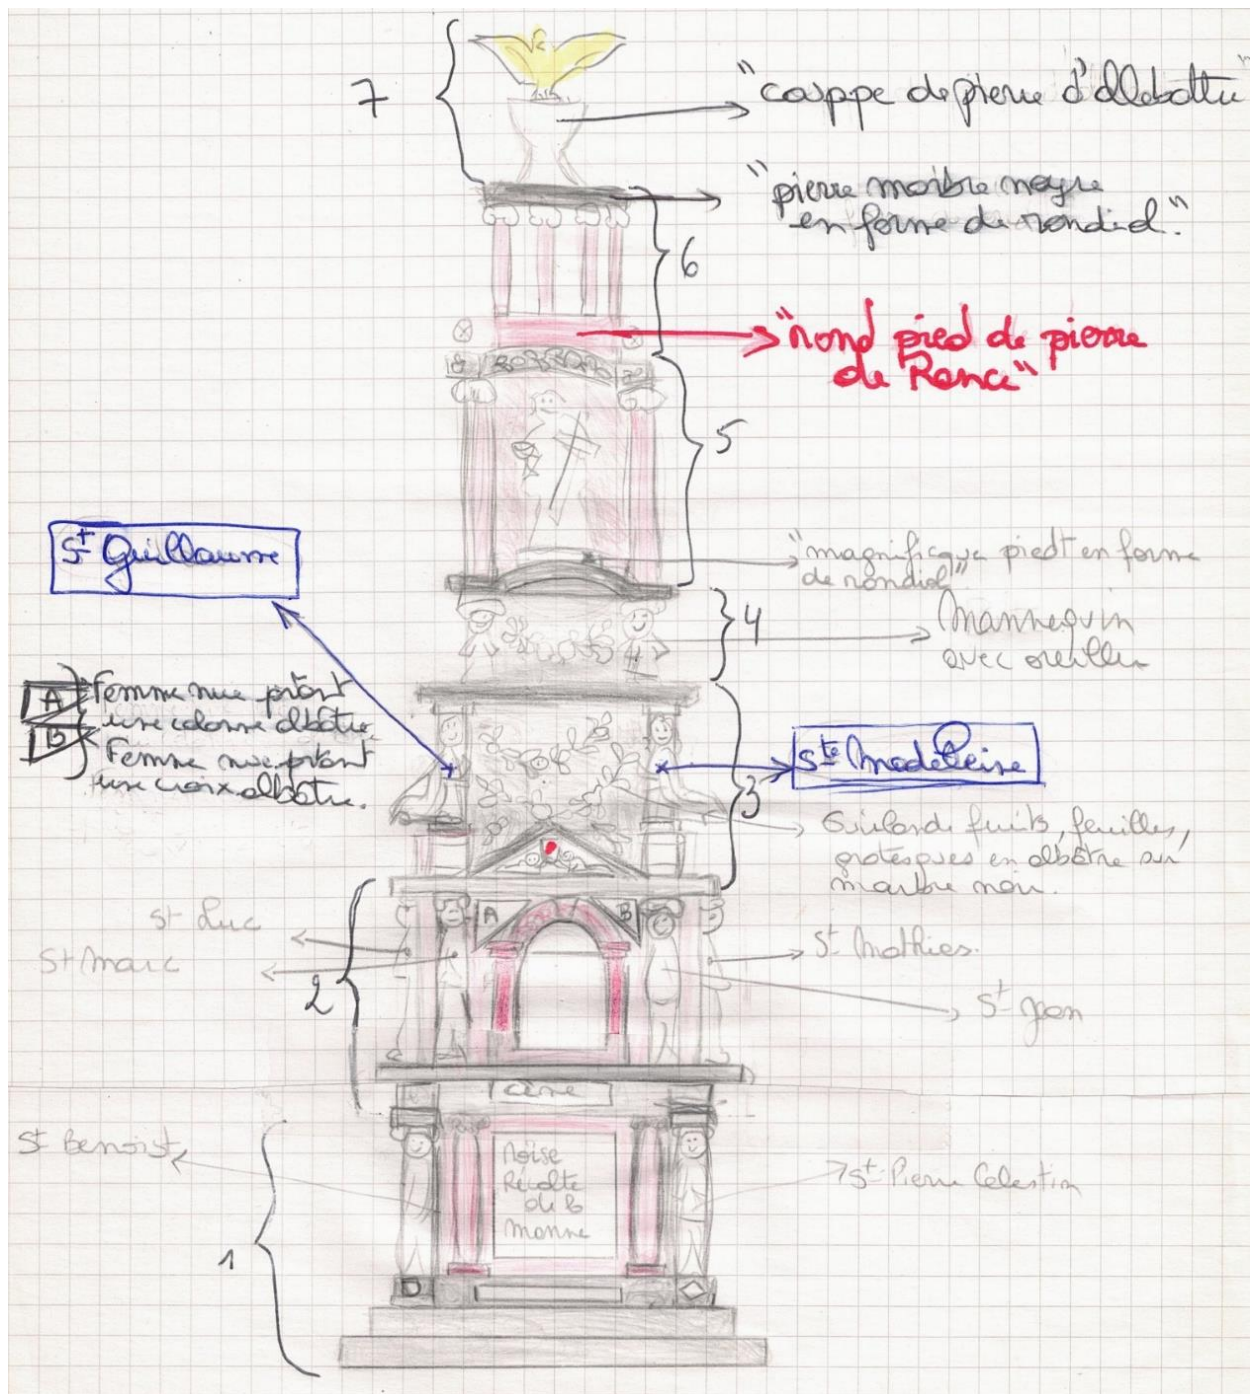 7
"couppe de pierre d'allebattre"
"pierre marbre noyre
en forme de rondial."
6
"rond pied de pierre
de Rance"
5
St Guillaume
"magnifique piedt en forme
de rondial"
4
Mannequin
avec oreilles
A Femme nue portant
une colonne albâtre.
B Femme nue portant
une croix albâtre.
Ste Madeleine
3
Guirlande fruits, feuilles,
grotesques en albâtre sur
marbre noir.
A
B
St Luc
St Marc
St Mathieu.
St Jean
2
Cène
St Benoist
St Pierre Célestin
Moïse
Récolte
de la
manne
1